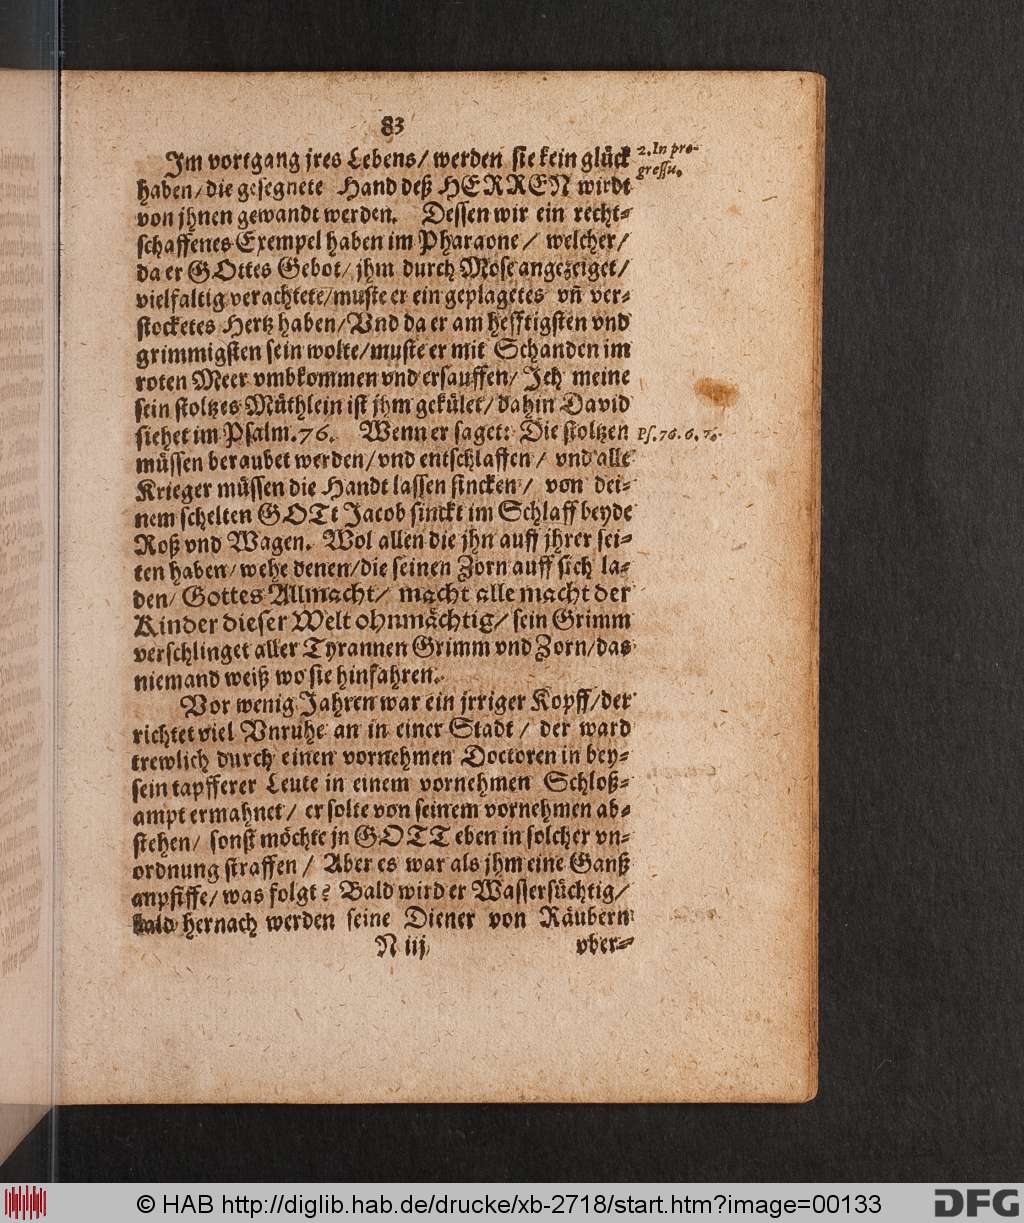 83
Im vortgang jres Lebens/ werden sie kein glück
2. In pro-
gressu.
haben/ die gesegnete Hand deß HERREN wirdt
von jhnen gewandt werden. Dessen wir ein recht-
schaffenes Exempel haben im Pharaone/ welcher/
da er GOttes Gebot/ jhm durch Mose angezeiget/
vielfaltig verachtete/ muste er ein geplagetes vñ ver-
stocketes Hertz haben/ Vnd da er am hefftigsten vnd
grimmigsten sein wolte/ muste er mit Schanden im
roten Meer vmbkommen vnd ersauffen/ Jch meine
sein stoltzes Müthlein ist jhm gekület/ dahin David
siehet im Psalm. 76. Wenn er saget: Die stoltzen
Ps. 76. 6. 7.
müssen beraubet werden/ vnd entschlaffen/ vnd alle
Krieger müssen die Handt lassen sincken/ von dei-
nem schelten GOTt Jacob sinckt im Schlaff beyde
Roß vnd Wagen. Wol allen die jhn auff jhrer sei-
ten haben/ wehe denen/ die seinen Zorn auff sich la-
den/ Gottes Allmacht/ macht alle macht der
Kinder dieser Welt ohnmächtig/ sein Grimm
verschlinget aller Tyrannen Grimm vnd Zorn/ das
niemand weiß wo sie hinfahren.
Vor wenig Jahren war ein jrriger Kopff/ der
richtet viel Vnruhe an in einer Stadt/ der ward
trewlich durch einen vornehmen Doctoren in bey-
sein tapfferer Leute in einem vornehmen Schloß-
ampt ermahnet/ er solte von seinem vornehmen ab-
stehen/ sonst möchte jn GOTT eben in solcher vn-
ordnung straffen/ Aber es war als jhm eine Ganß
anpfiffe/ was folgt? Bald wird er Wassersüchtig/
bald hernach werden seine Diener von Räubern
N iij
vber-
© HAB http://diglib.hab.de/drucke/xb-2718/start.htm?image=00133
DFG